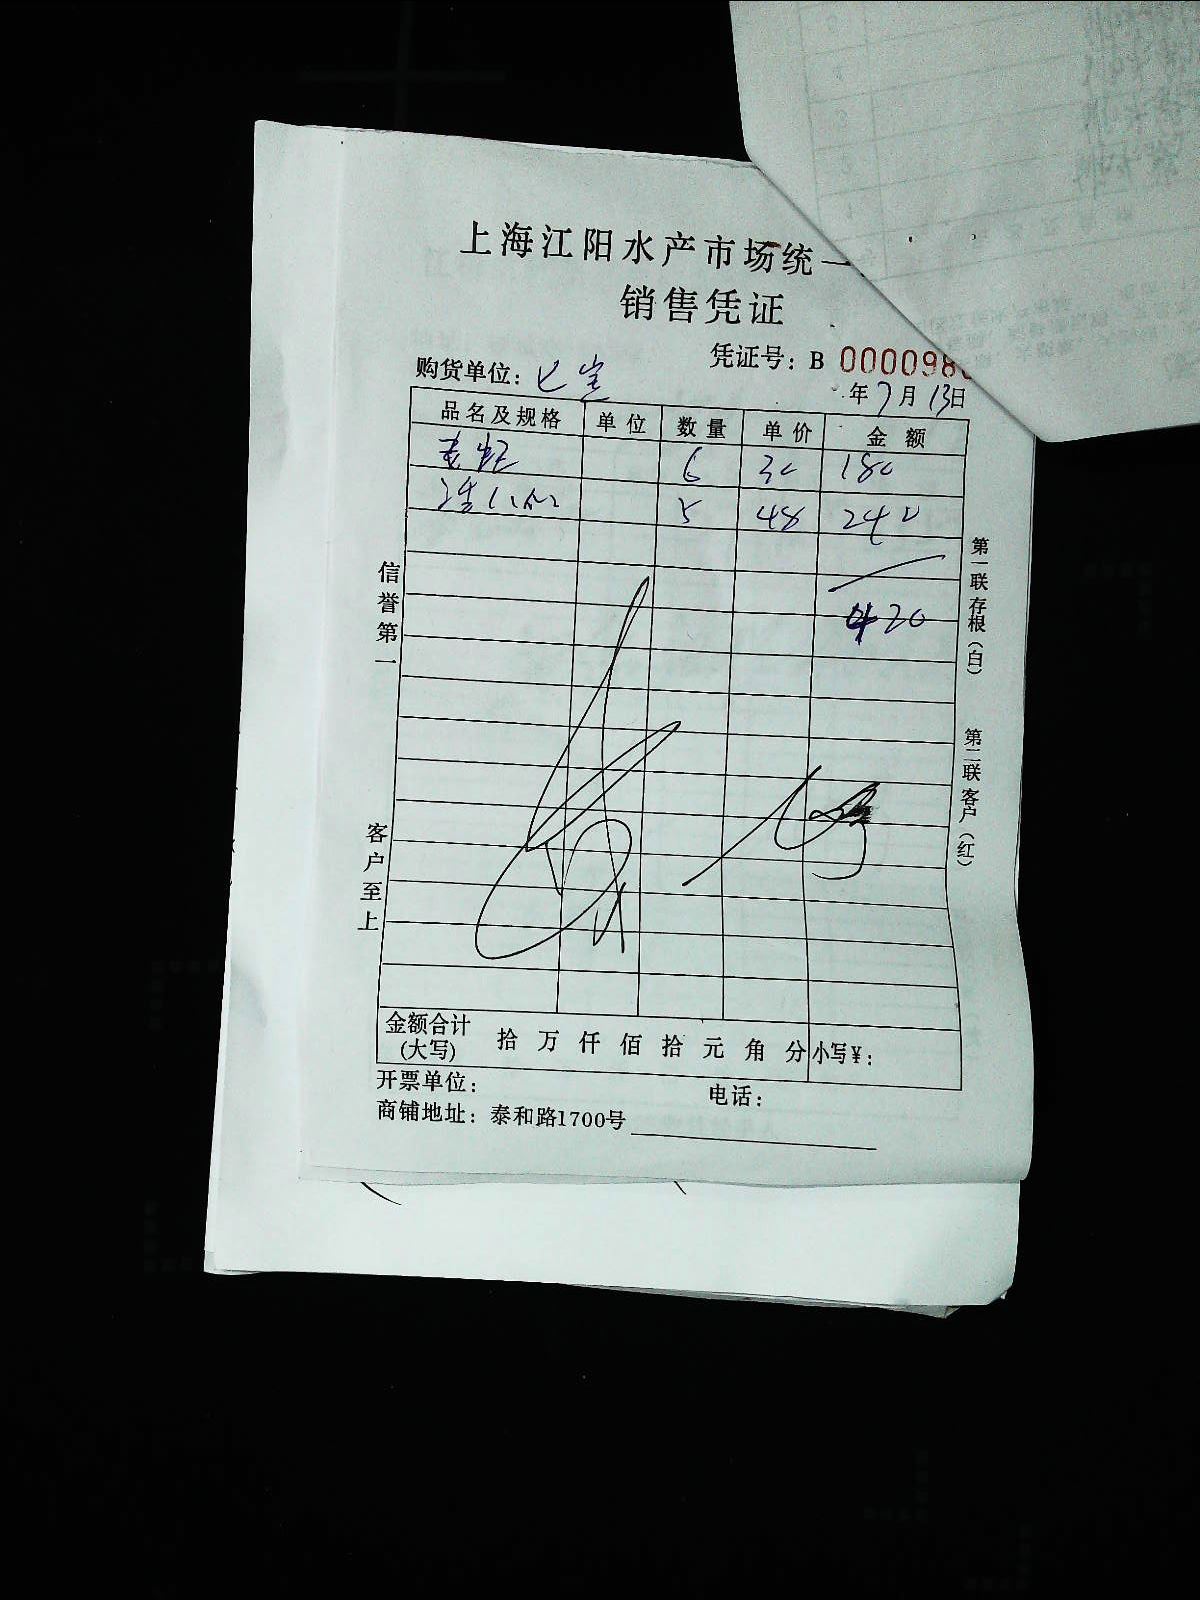 上海江阳水产市场统一
销售凭证
凭证号：B 000098
购货单位：
年7月13日
品名及规格 单位 数量 单价 金额
6 30 180
5 48 240
420
信誉第一
客户至上
第一联 存根（白）
第二联 客户（红）
金额合计（大写） 拾 万 仟 佰 拾 元 角 分 小写￥：
开票单位： 电话：
商铺地址：泰和路1700号